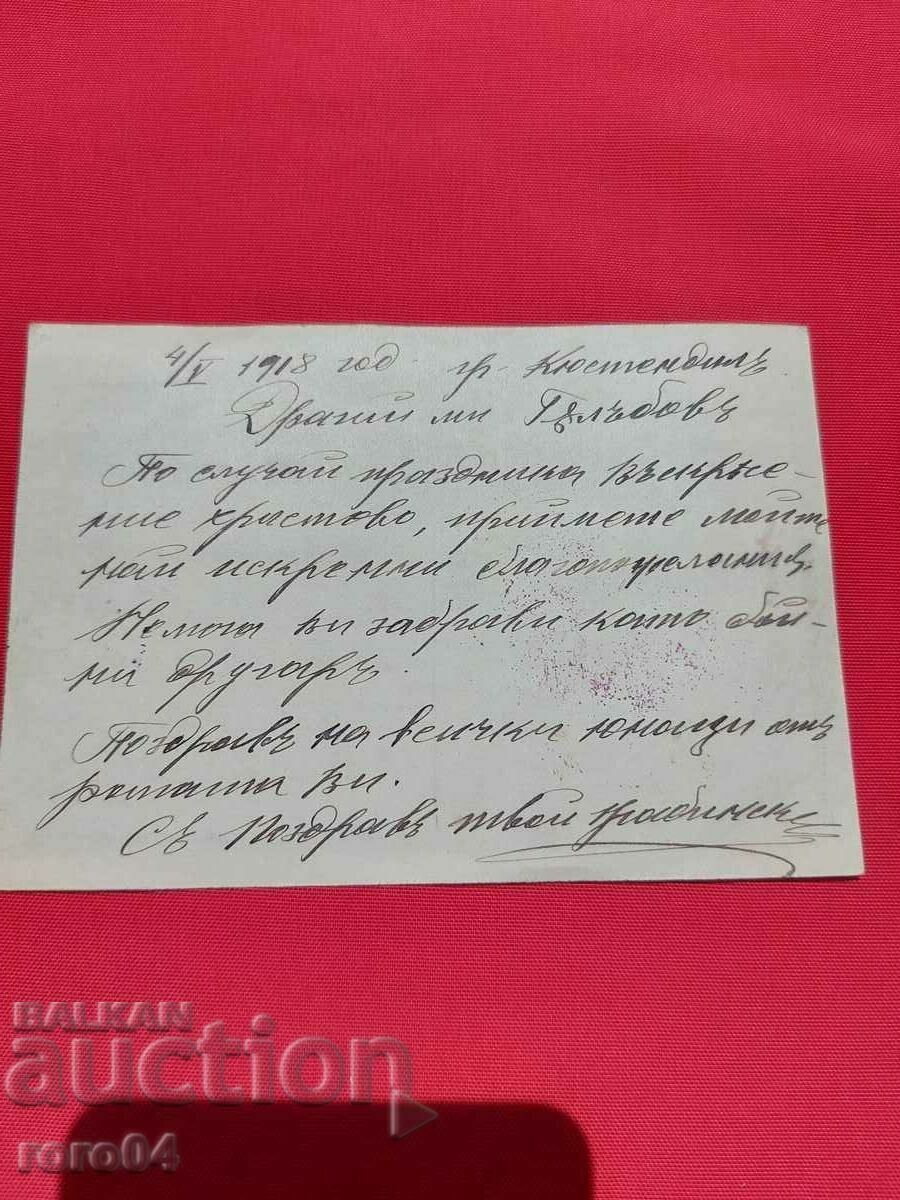 4/V 1918 год гр. Кюстендилъ
Драгий ми Гѫлъбовъ
По случай праздника Въскръсе-
ние христово, приймете мойте
най искренни благопожелания.
Немога ви забрави като бой-
ни другаръ.
Поздравъ на всички юнаци отъ
ротата Ви.
Съ Поздравъ твой
BALKAN
auction
roro04